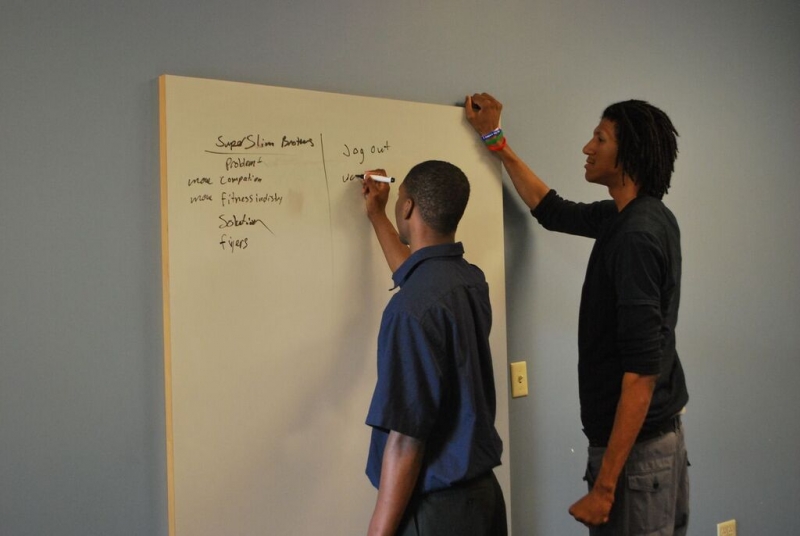 SuperSlim Brothers
Problem
more Compation
more Fitness indisty
Solution
fiyers
Jog out